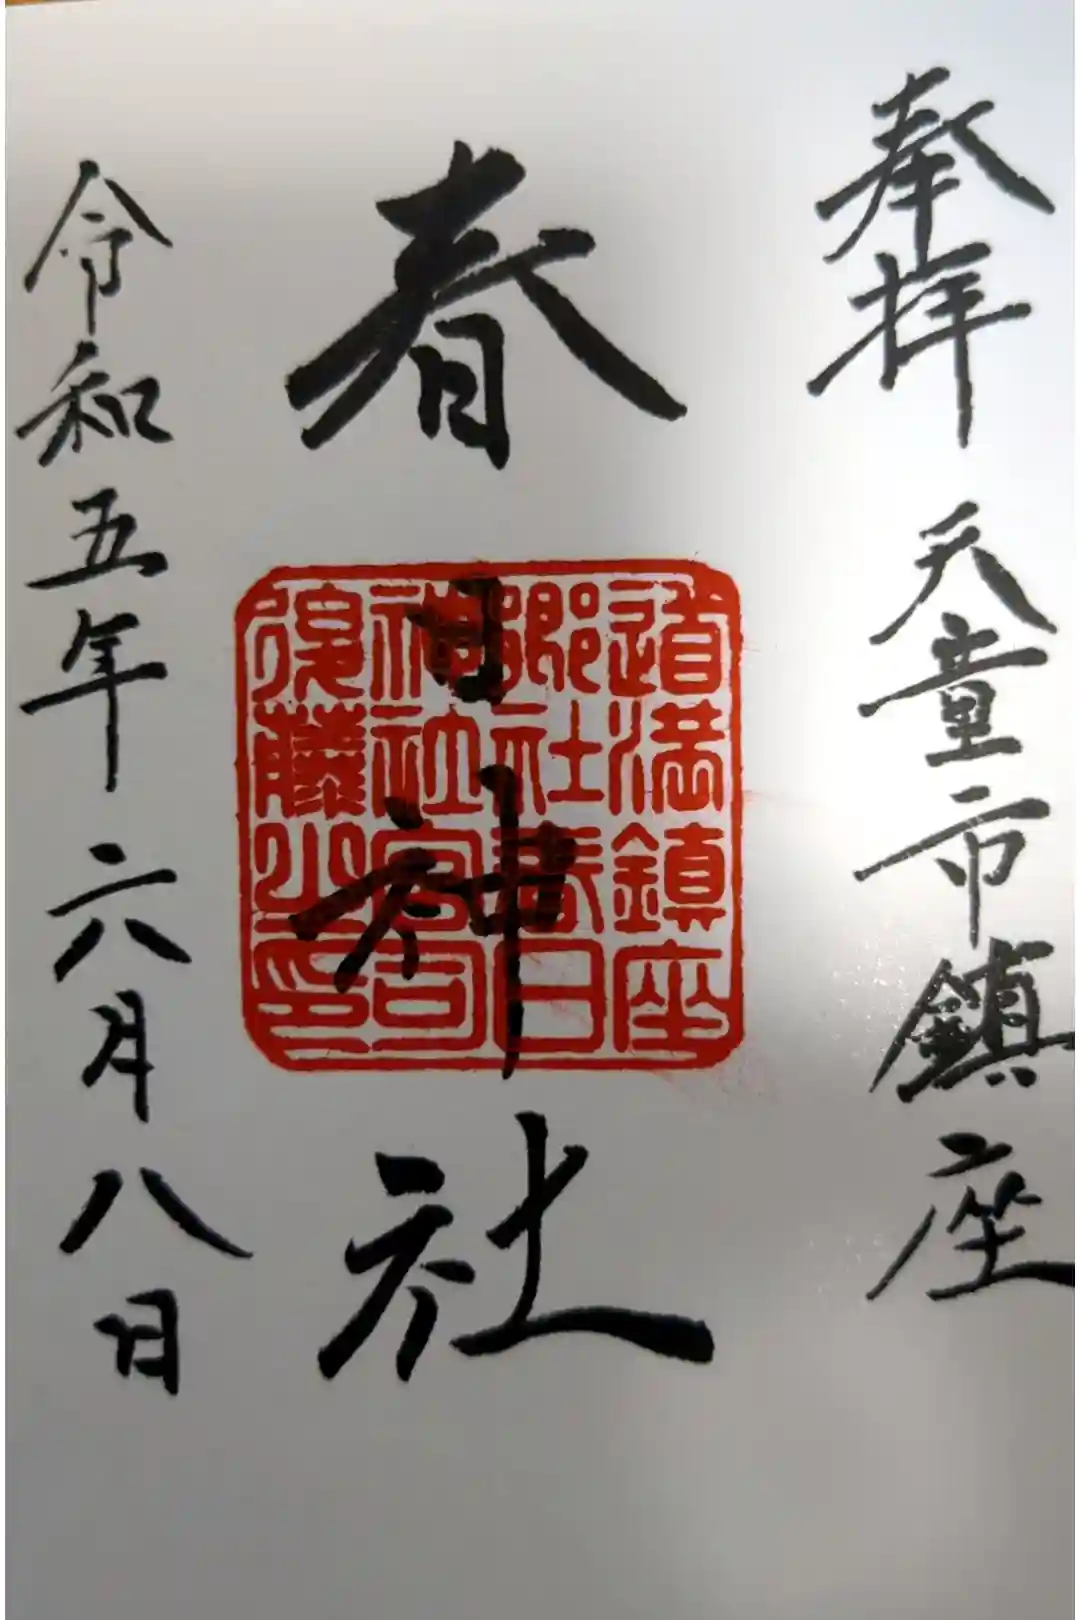 奉拝 天童市鎮座
春日神社
令和五年六月八日
道満鎮座
郷社春日
神社宮司
後藤
印